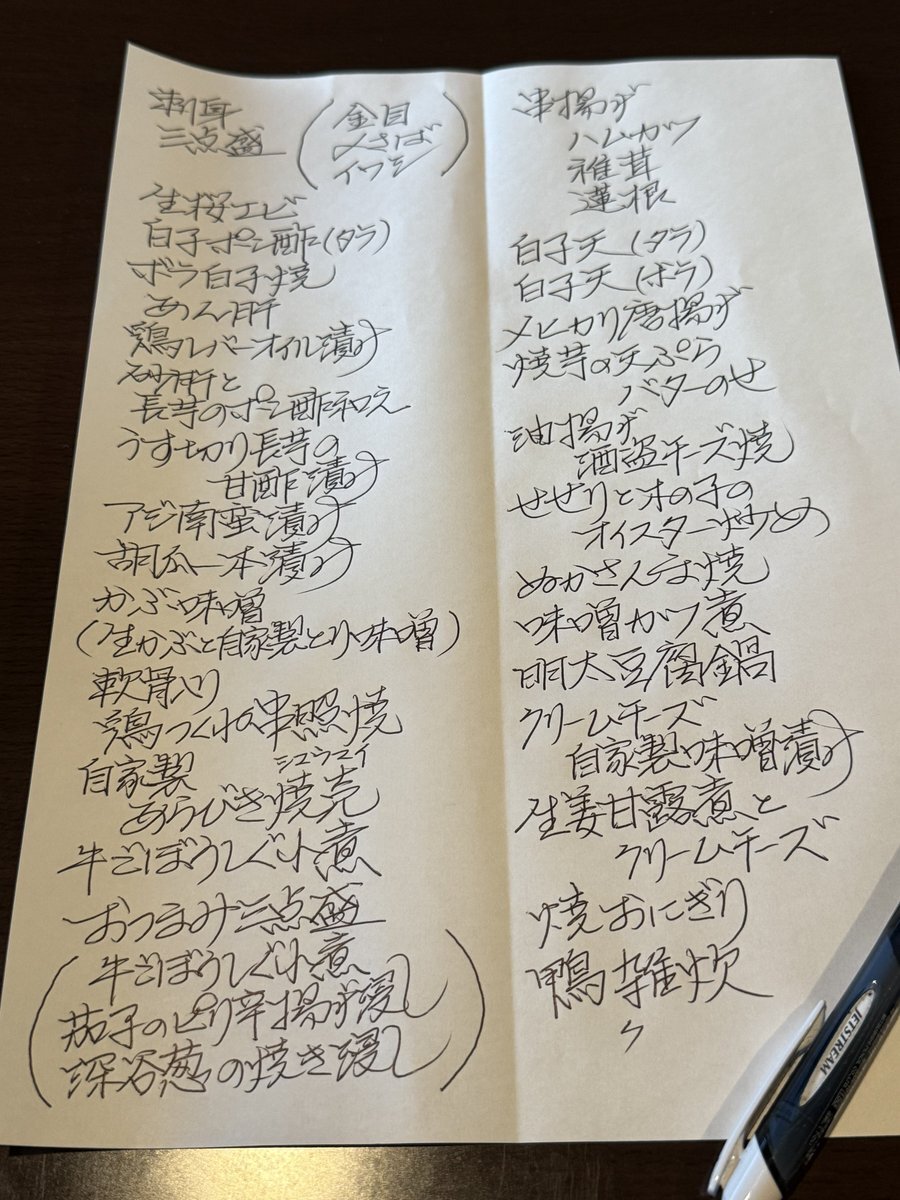 刺身
三点盛
(金目
〆さば
イワシ)
生桜エビ
白子ポン酢(タラ)
ボラ白子焼
あん肝
鶏レバーオイル漬け
砂肝と
長芋のポン酢和え
うす切り長芋の
甘酢漬け
アジ南蛮漬け
胡瓜一本漬け
かぶ味噌
(生かぶと自家製とり味噌)
軟骨入り
鶏つくねの串照焼
自家製
シュウマイ
あらびき焼売
牛ごぼうしぐれ煮
おつまみ三点盛
(牛ごぼうしぐれ煮
茄子のピリ辛揚げ浸し
深谷葱の焼き浸し)
串揚げ
ハムカツ
椎茸
蓮根
白子天(タラ)
白子天(ボラ)
メヒカリ唐揚げ
焼芋の天ぷら
バターのせ
油揚げ
酒盗チーズ焼
せせりと木の子の
オイスター炒め
ぬかさんま焼
味噌カツ煮
明太豆腐鍋
クリームチーズ
自家製味噌漬け
生姜甘露煮と
クリームチーズ
焼おにぎり
鴨雑炊
ク
JETSTREAM